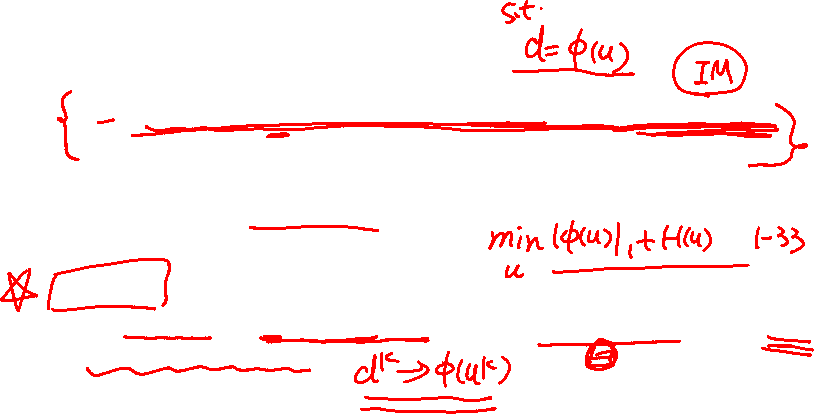 s.t.
d=ϕ(u)
IM
min |ϕ(u)|₁+H(u) 1-33
u
dᵏ→ϕ(uᵏ)